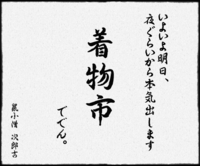 いよいよ明日、
夜ぐらいから本気出します
着物市
ででん。
鼠小僧 次郎吉